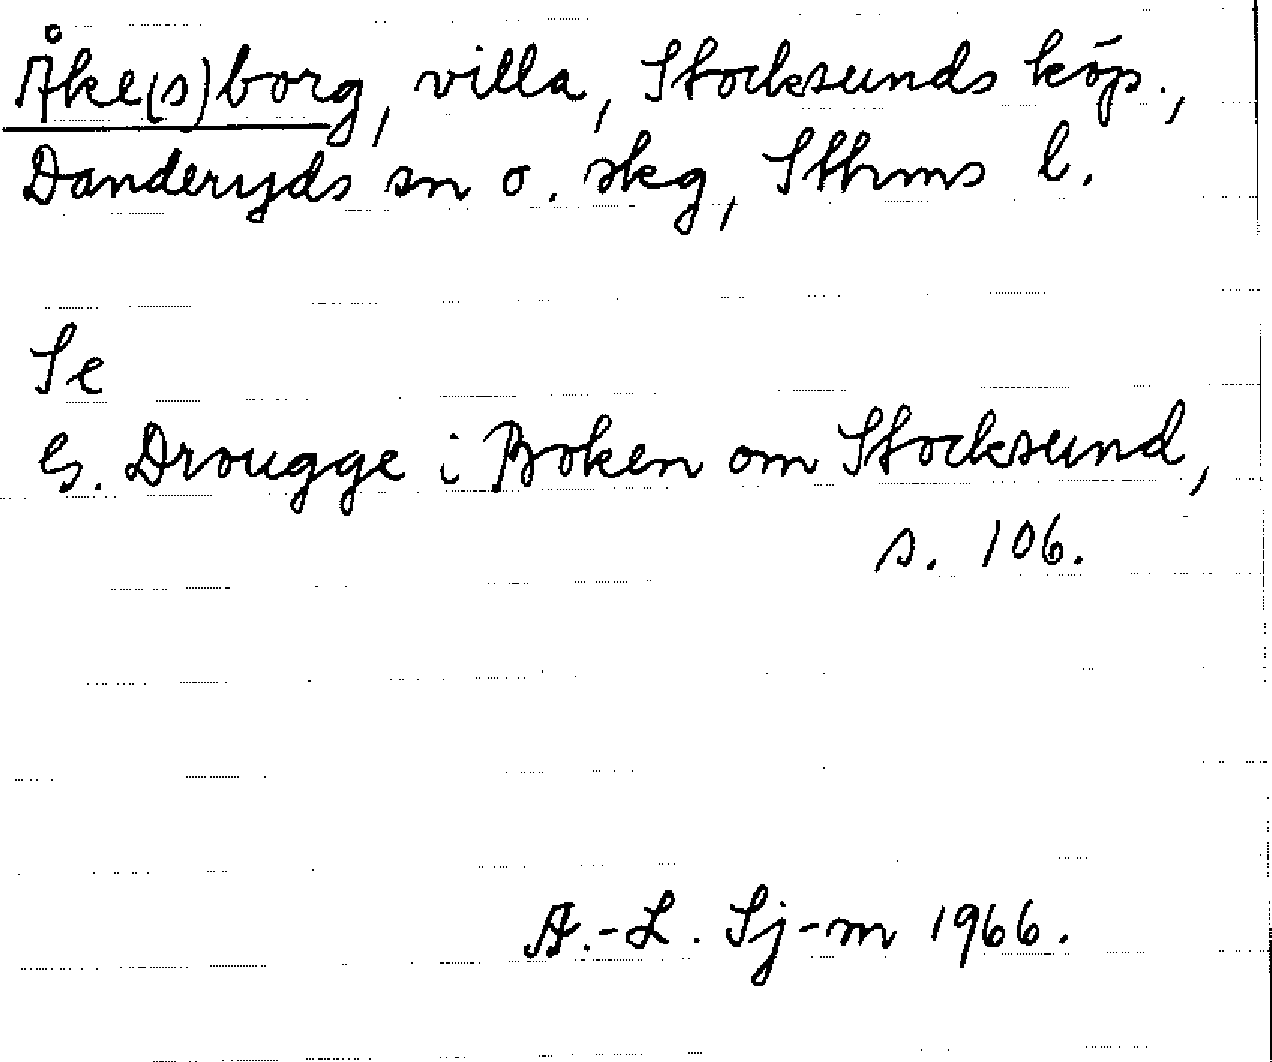 Åke(s)borg, villa, Stocksunds köp.,
Danderyds sn o. skg, Sthms l.
Se
G. Drougge i Boken om Stocksund,
s. 106.
A.-L. Sj-m 1966.